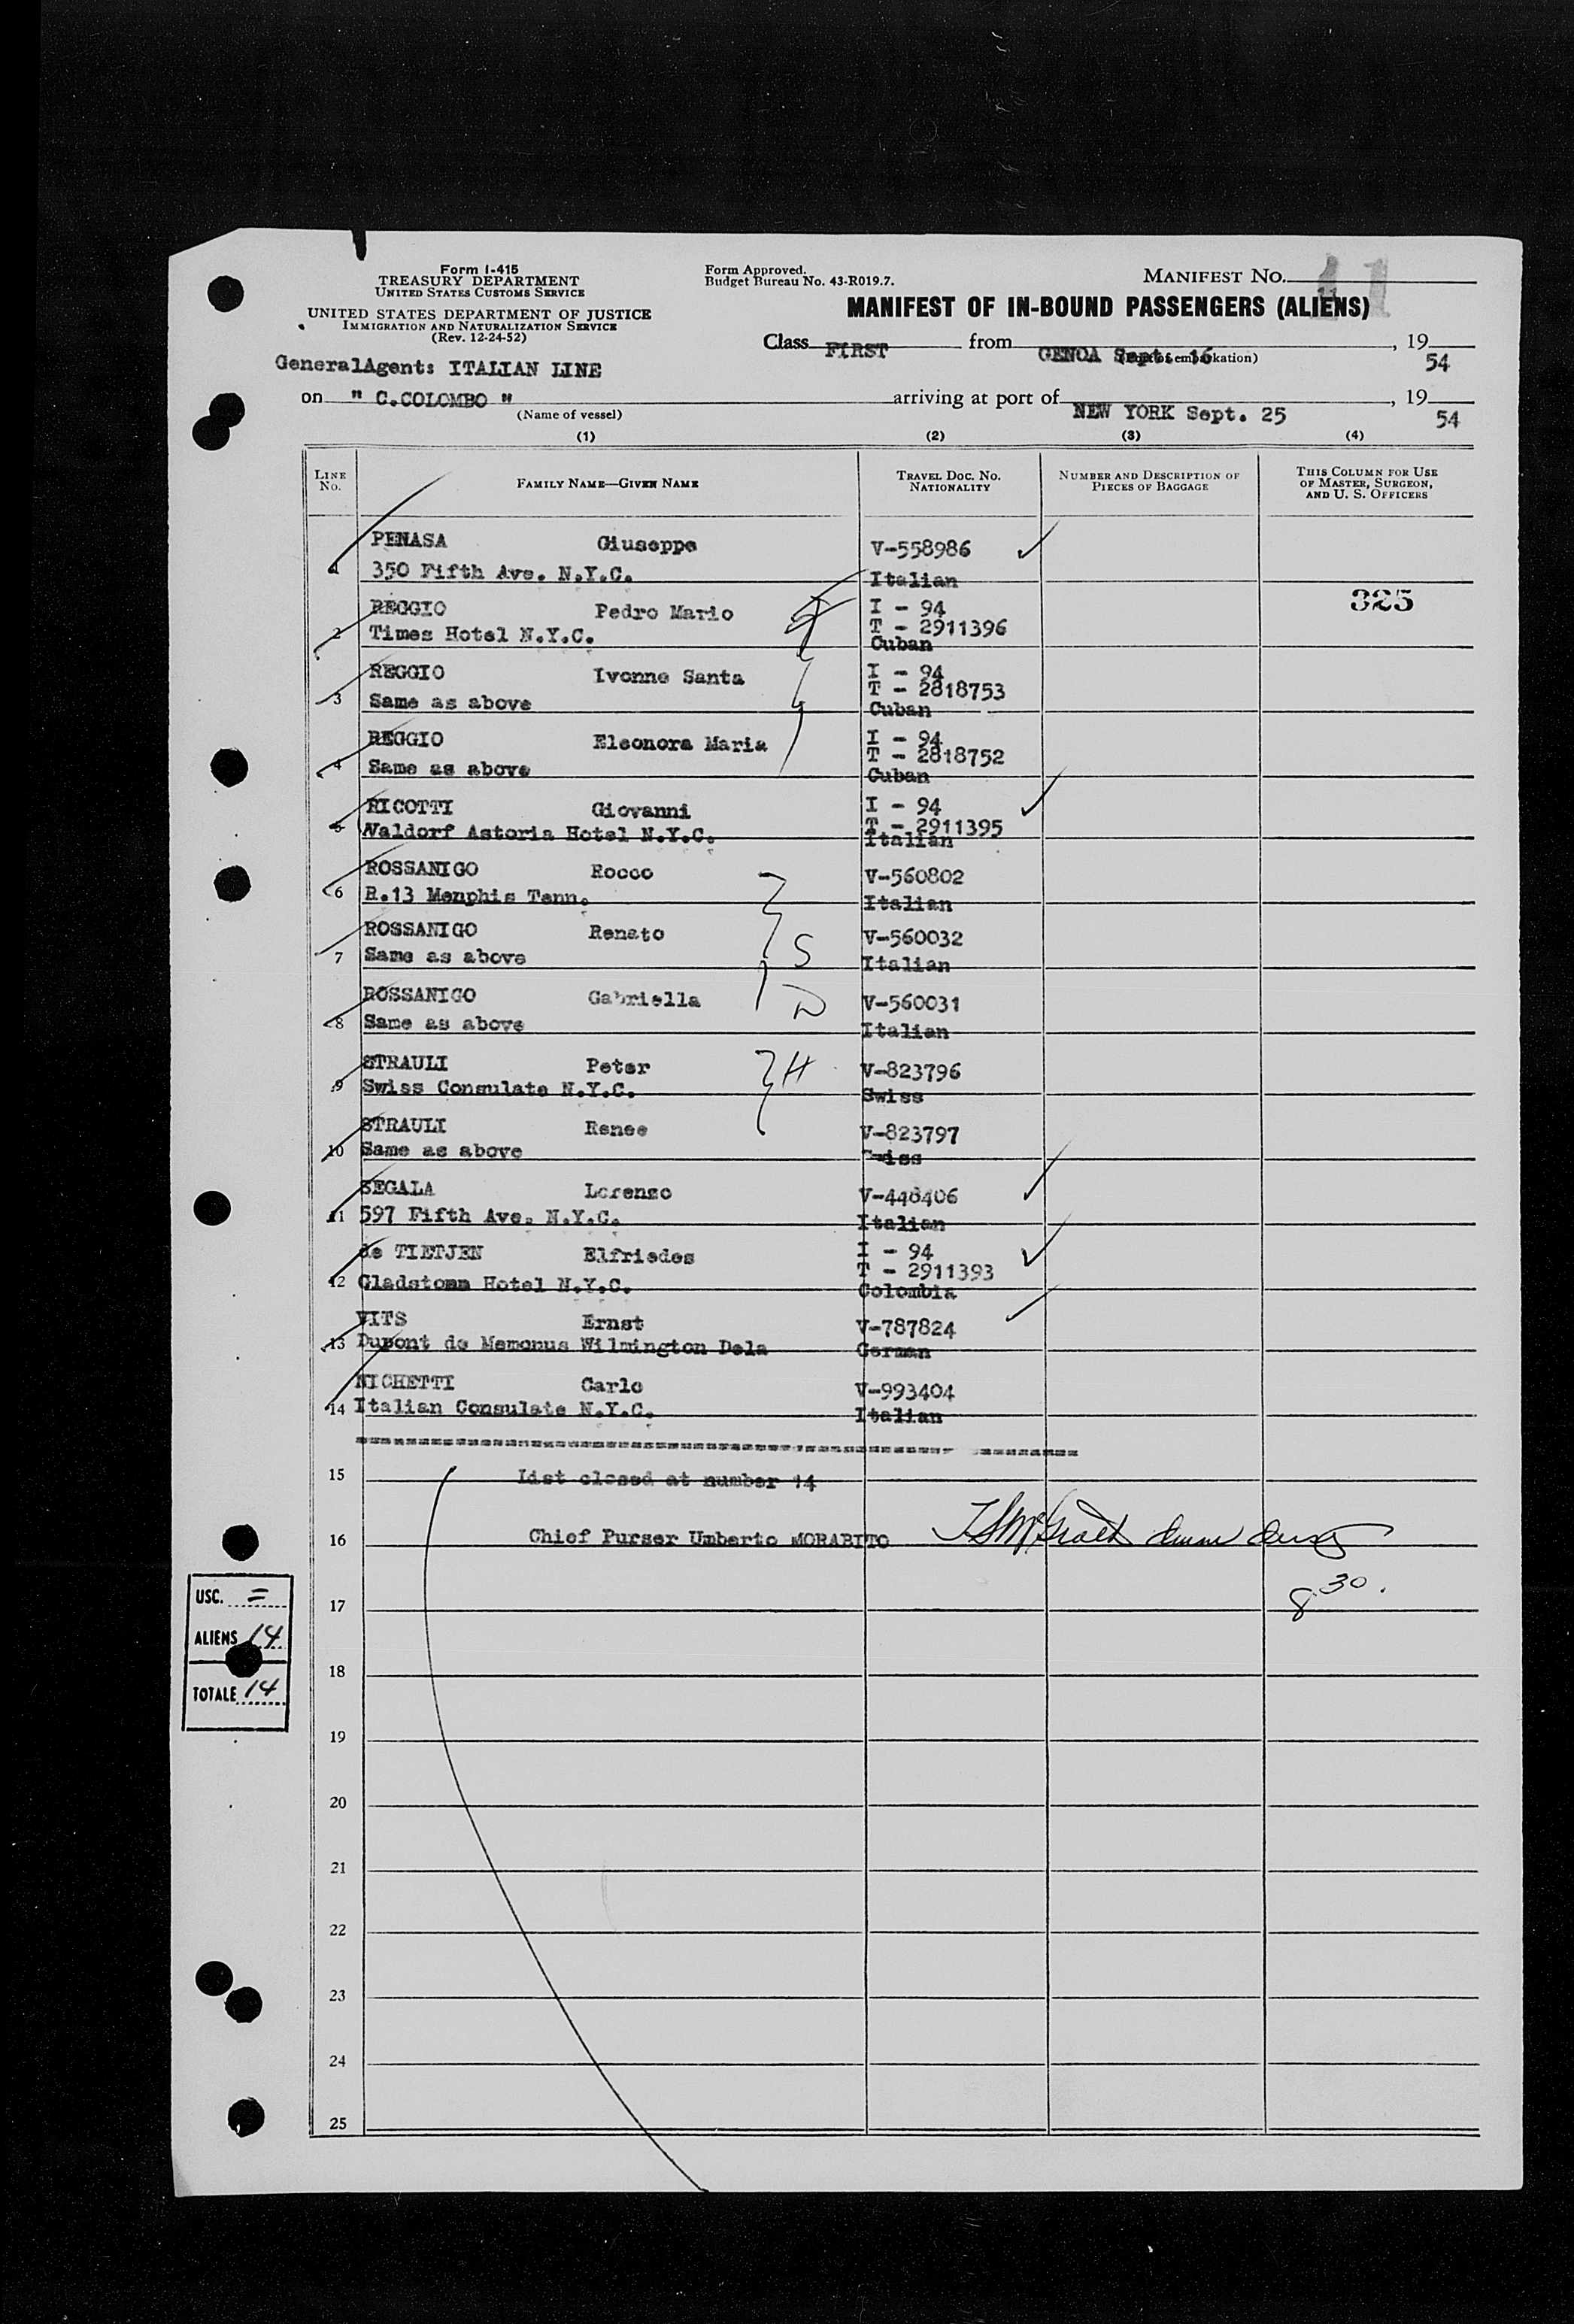 Form I-415
TREASURY DEPARTMENT
UNITED STATES CUSTOMS SERVICE
UNITED STATES DEPARTMENT OF JUSTICE
IMMIGRATION AND NATURALIZATION SERVICE
(Rev. 12-24-52)
Form Approved.
Budget Bureau No. 43-R019.7.
MANIFEST NO. 11
MANIFEST OF IN-BOUND PASSENGERS (ALIENS)
Class FIRST from GENOA Sept. 16, 19 54
GeneralAgent: ITALIAN LINE
on " C.COLOMBO " arriving at port of NEW YORK Sept. 25, 19 54
(Name of vessel)
(1) (2) (3) (4)
LINE NO.
FAMILY NAME—GIVEN NAME
TRAVEL DOC. NO. NATIONALITY
NUMBER AND DESCRIPTION OF PIECES OF BAGGAGE
THIS COLUMN FOR USE OF MASTER, SURGEON, AND U. S. OFFICERS
PENASA Giuseppe V-558986
1 350 Fifth Ave. N.Y.C. Italian
325
REGGIO Pedro Mario I - 94
T - 2911396
2 Times Hotel N.Y.C. Cuban
REGGIO Ivonne Santa I - 94
T - 2818753
3 Same as above Cuban
REGGIO Eleonora Maria I - 94
T - 2818752
4 Same as above Cuban
RICOTTI Giovanni I - 94
T - 2911395
5 Waldorf Astoria Hotel N.Y.C. Italian
ROSSANIGO Rocco V-560802
6 R.13 Menphis Tenn. Italian
ROSSANIGO Renato V-560032
S
7 Same as above Italian
ROSSANIGO Gabriella V-560031
D
8 Same as above Italian
STRAULI Peter H V-823796
9 Swiss Consulate N.Y.C. Swiss
STRAULI Renee V-823797
10 Same as above Swiss
SEGALA Lorenzo V-448406
11 597 Fifth Ave. N.Y.C. Italian
de TIETJEN Elfriedes I - 94
T - 2911393
12 Gladstonm Hotel N.Y.C. Colombia
VITS Ernst V-787824
13 Dupont de Memonus Wilmington Dela German
NICHETTI Carlo V-993404
14 Italian Consulate N.Y.C. Italian
15 List closed at number 14
16 Chief Purser Umberto MORABITO
8 30.
17
USC. =
ALIENS 14
TOTALE 14
18
19
20
21
22
23
24
25